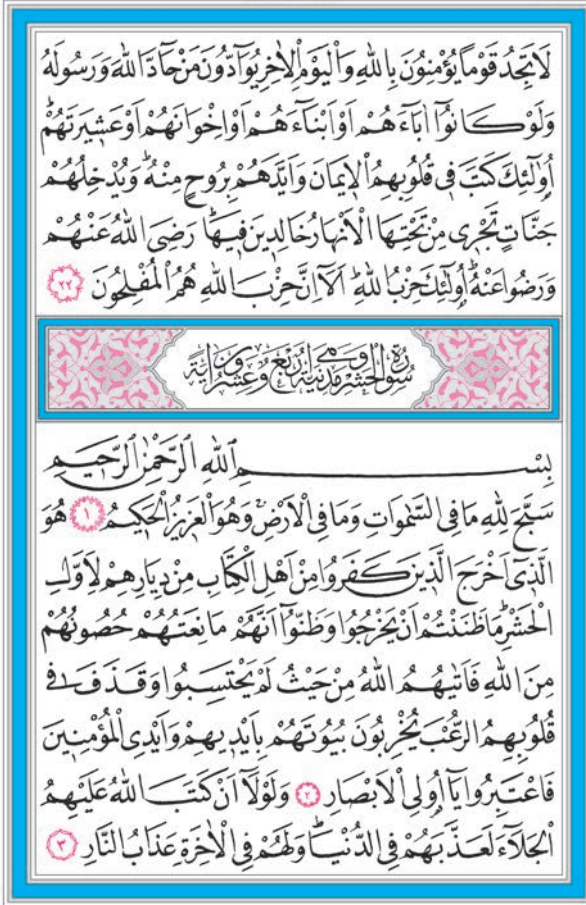 لَا تَجِدُ قَوْمًا يُؤْمِنُونَ بِاللّٰهِ وَالْيَوْمِ الْاٰخِرِ يُوَٓادُّونَ مَنْ حَٓادَّ اللّٰهَ وَرَسُولَهُ
وَلَوْ كَانُٓوا اٰبَٓاءَهُمْ اَوْ اَبْنَٓاءَهُمْ اَوْ اِخْوَانَهُمْ اَوْ عَش۪يرَتَهُمْۜ
اُو۬لٰٓئِكَ كَتَبَ ف۪ي قُلُوبِهِمُ الْا۪يمَانَ وَاَيَّدَهُمْ بِرُوحٍ مِنْهُۜ وَيُدْخِلُهُمْ
جَنَّاتٍ تَجْر۪ي مِنْ تَحْتِهَا الْاَنْهَارُ خَالِد۪ينَ ف۪يهَاۜ رَضِيَ اللّٰهُ عَنْهُمْ
وَرَضُوا عَنْهُۜ اُو۬لٰٓئِكَ حِزْبُ اللّٰهِۜ اَلَٓا اِنَّ حِزْبَ اللّٰهِ هُمُ الْمُفْلِحُونَ ﴿٢٢﴾
سُورَةُ الْحَشْرِ مَدَنِيَّةٌ وَهِيَ اَرْبَعٌ وَعِشْرُونَ اٰيَةً
بِسْمِ اللّٰهِ الرَّحْمٰنِ الرَّح۪يمِ
سَبَّحَ لِلّٰهِ مَا فِي السَّمٰوَاتِ وَمَا فِي الْاَرْضِۚ وَهُوَ الْعَز۪يزُ الْحَك۪يمُ ﴿١﴾ هُوَ
الَّذ۪ٓي اَخْرَجَ الَّذ۪ينَ كَفَرُوا مِنْ اَهْلِ الْكِتَابِ مِنْ دِيَارِهِمْ لِاَوَّلِ
الْحَشْرِۜ مَا ظَنَنْتُمْ اَنْ يَخْرُجُوا وَظَنُّٓوا اَنَّهُمْ مَانِعَتُهُمْ حُصُونُهُمْ
مِنَ اللّٰهِ فَاَتٰيهُمُ اللّٰهُ مِنْ حَيْثُ لَمْ يَحْتَسِبُوا وَقَذَفَ ف۪ي
قُلُوبِهِمُ الرُّعْبَ يُخْرِبُونَ بُيُوتَهُمْ بِاَيْد۪يهِمْ وَاَيْدِي الْمُؤْمِن۪ينَ
فَاعْتَبِرُوا يَٓا اُو۬لِي الْاَبْصَارِ ﴿٢﴾ وَلَوْلَٓا اَنْ كَتَبَ اللّٰهُ عَلَيْهِمُ
الْجَلَٓاءَ لَعَذَّبَهُمْ فِي الدُّنْيَاۜ وَلَهُمْ فِي الْاٰخِرَةِ عَذَابُ النَّارِ ﴿٣﴾